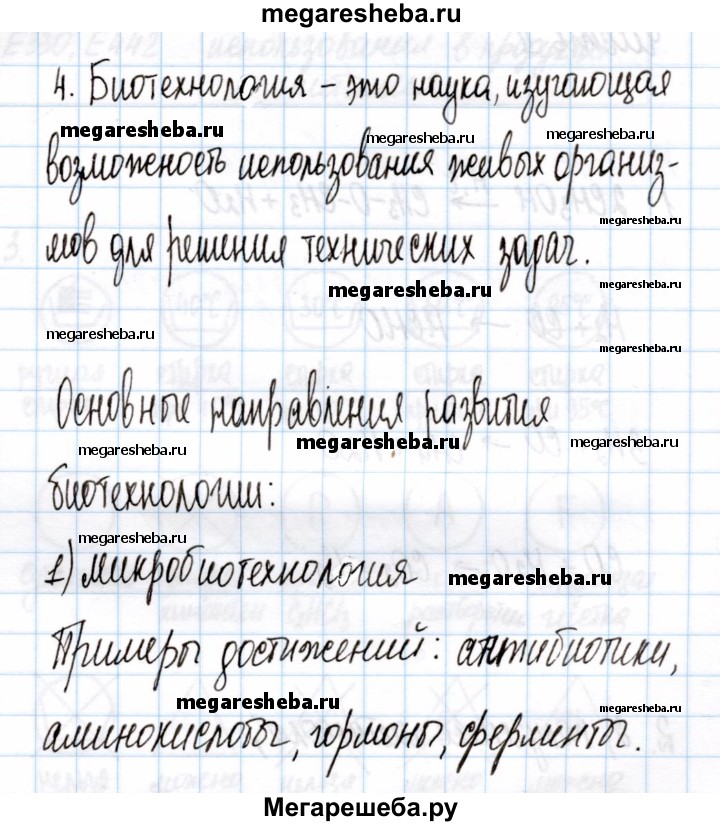 megaresheba.ru
4. Биотехнология – это наука, изучающая
megaresheba.ru megaresheba.ru megaresheba.ru
возможность использования живых организ-
megaresheba.ru
мов для решения технических задач.
megaresheba.ru megaresheba.ru
megaresheba.ru
megaresheba.ru
Основные направления развития
megaresheba.ru megaresheba.ru megaresheba.ru
биотехнологии:
megaresheba.ru
1) микробиотехнология
megaresheba.ru megaresheba.ru
Примеры достижений: антибиотики,
megaresheba.ru megaresheba.ru
аминокислоты, гормоны, ферменты.
Мегарешеба.ру